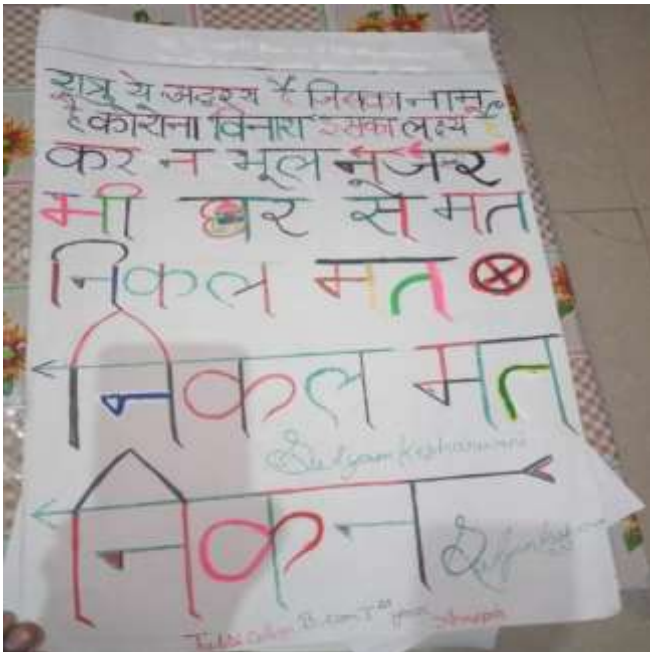 शत्रु ये अदृश्य है जिसका नाम
है कोरोना विनाश इसका लक्ष्य है
कर न भूल नजर
भी घर से मत
निकल मत
निकल मत
Satyam Kesharwani
निकन
B.com Ist year